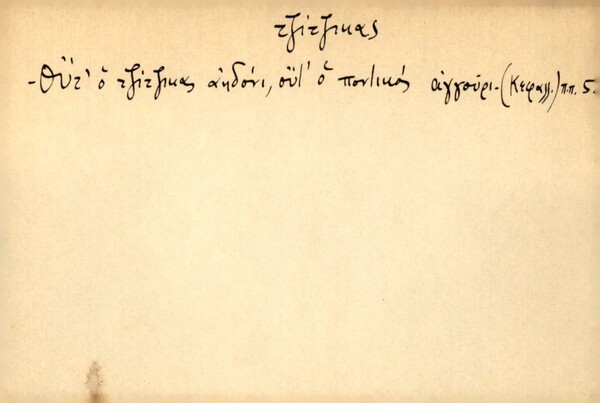 τζίτζικας
- Οὔτ' ὁ τζίτζικας ἀηδόνι, οὔτ' ὁ ποντικός ἀγγούρι - (Κεφαλλ.) π.π. 5.